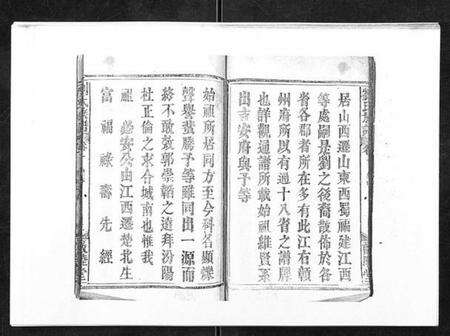 居山西遷山東西蜀福建江西
等處嗣是劉之後裔散佈於各
省各郡者所在多有此江右贛
州府所以有過十八省之譜牌
也詳觀通譜所載始祖維賢系
出吉安府與予等
始祖所居同方至今科名顯爍
聲譽蜚騰予等雖同出一源而
終不敢效郭崇韜之追拜汾陽
杜正倫之求合城南也惟我
祖 安公由江西遷楚北生
富 福 祿 壽 先 經